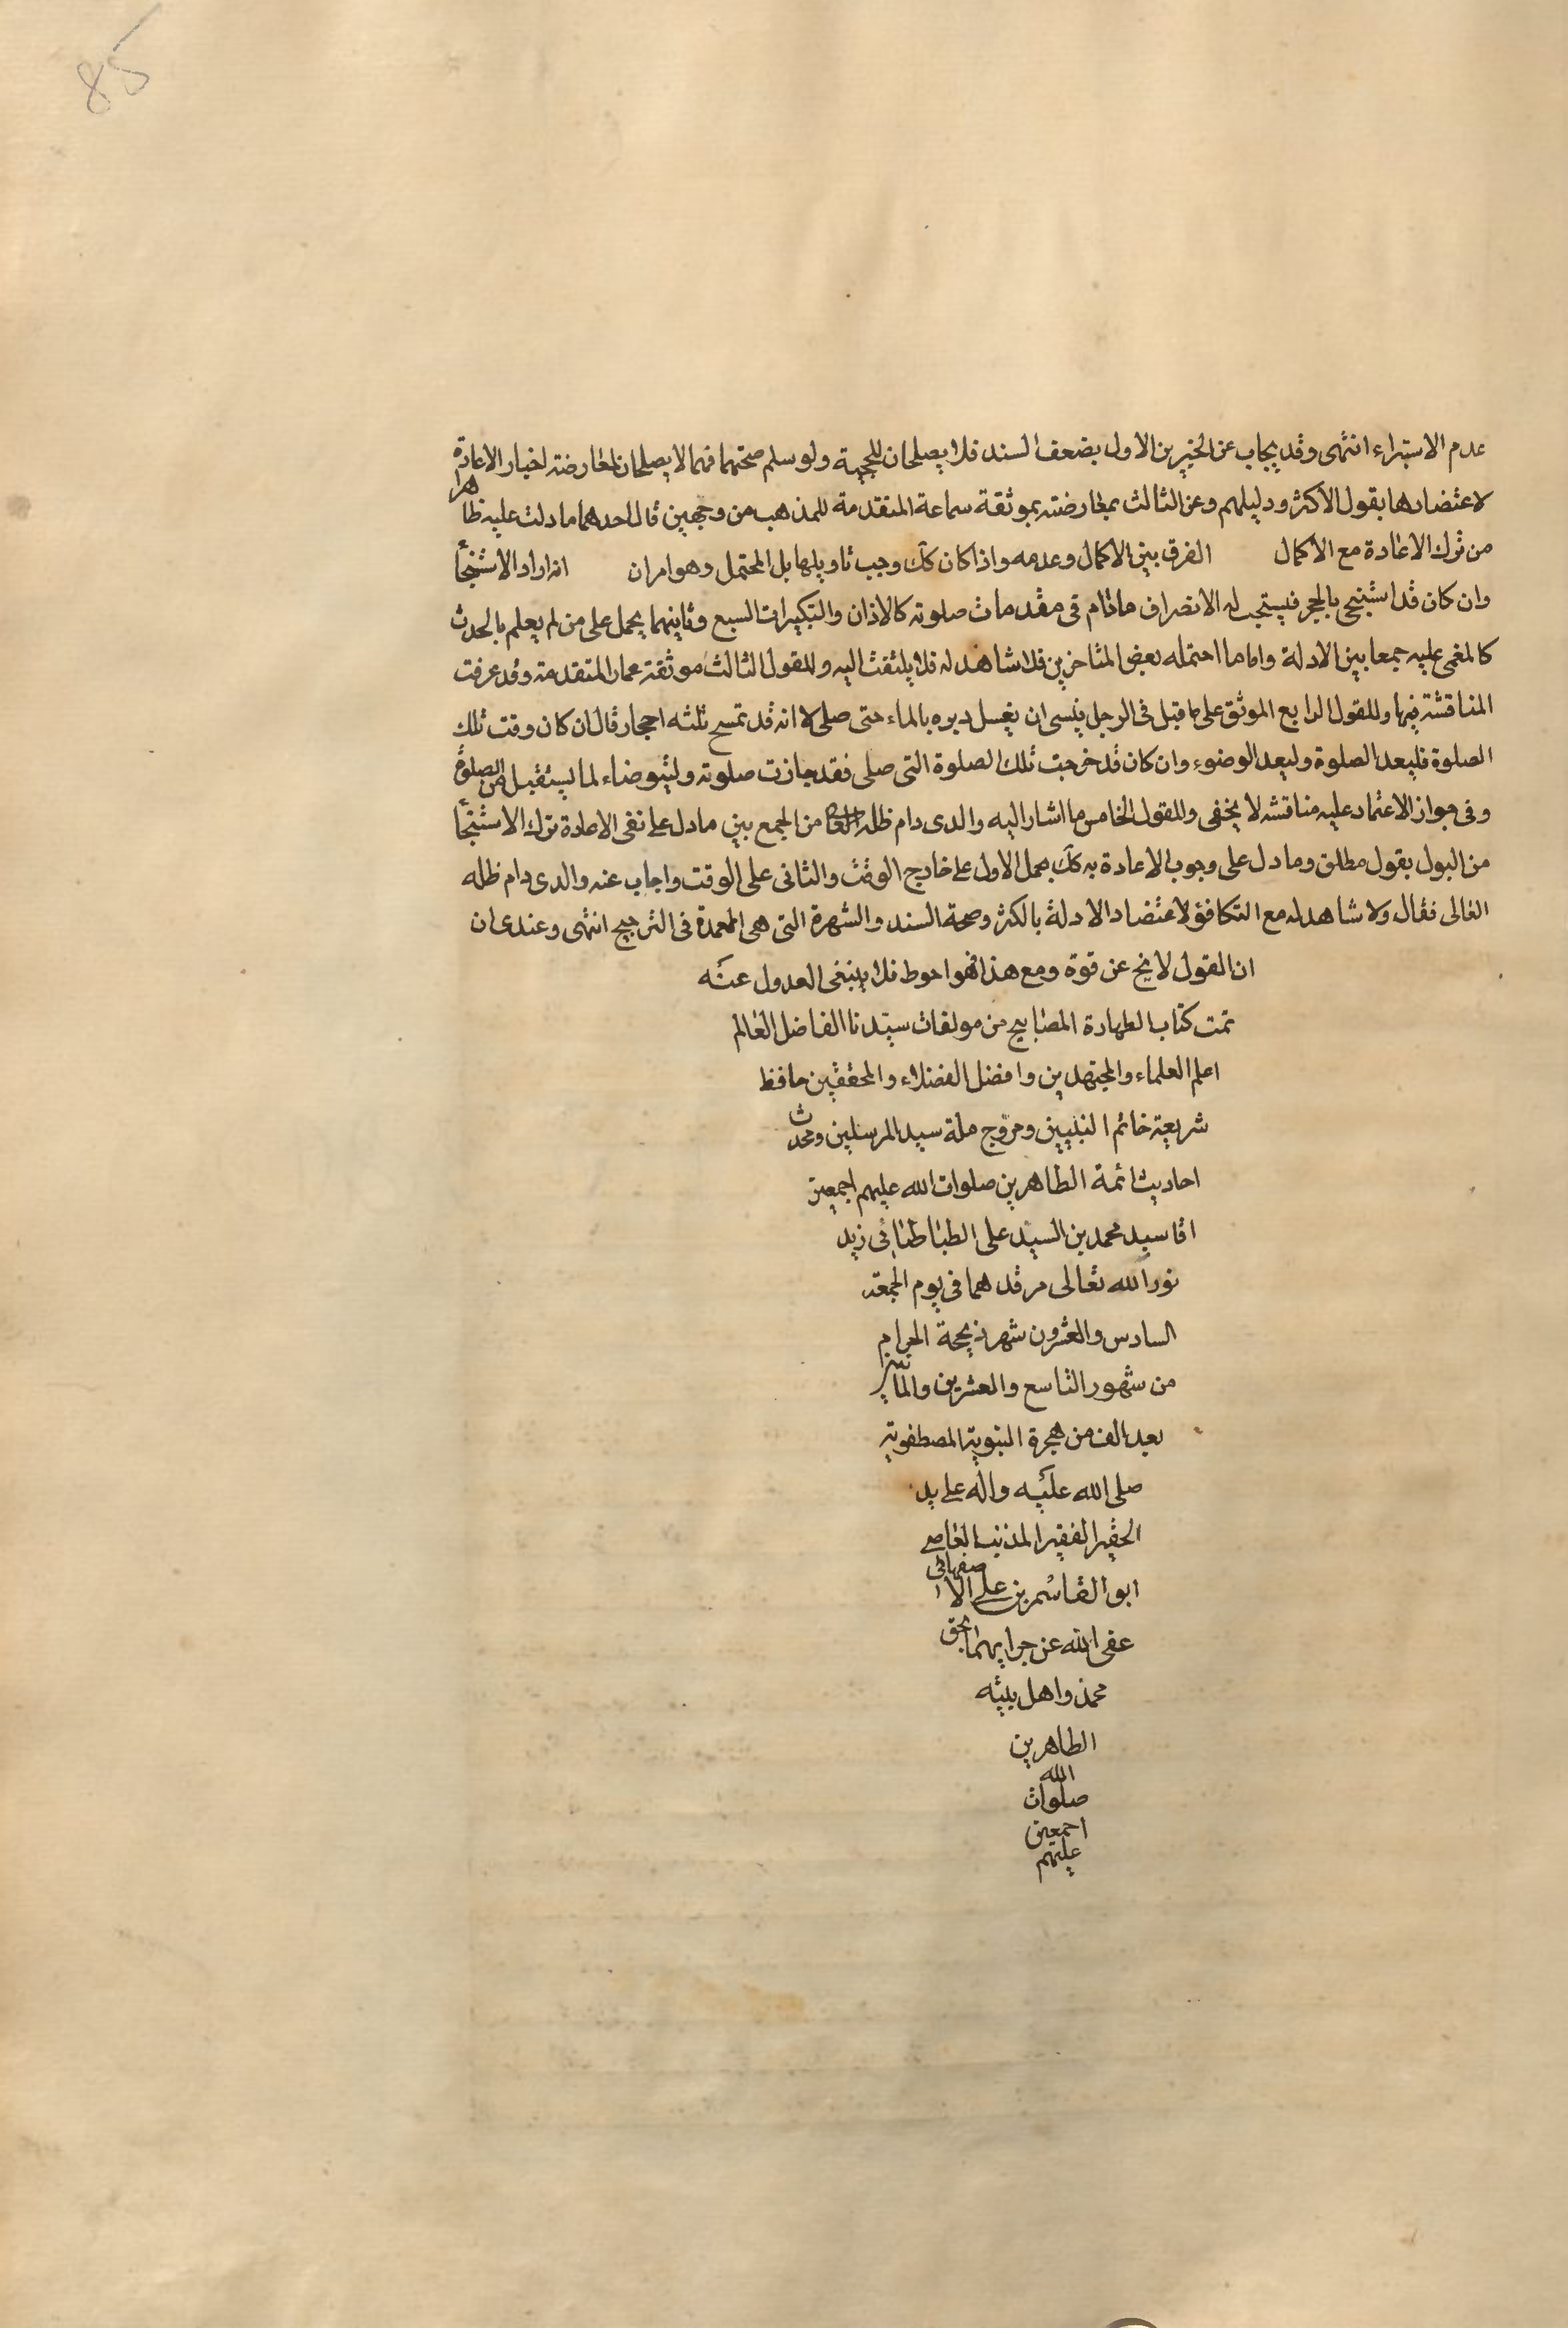 85
عدم الاستبراء انتهى وقد يجاب عن الخبرين الاول بضعف السند فلا يصلحان للحجية ولو سلم صحتهما فهما لا يصلحان لمعارضة اخبار الاعادة
لاعتضادها بقول الاكثر ودليلهم وعن الثالث بمعارضته بموثقة سماعة المتقدمة للمذهب من وجهين قال احدهما ما دلت عليه ظاهرا
من ترك الاعادة مع الاكمال الفرق بين الاكمال وعدمه واذا كان كك وجب تاويلها بل المحتمل وهو امران انه اراد الاستنجا
وان كان قد استنجى بالحجر فيستحب له الانصراف مادام فى مقدمات صلوته كالاذان والتكبيرات السبع وثانيهما يحمل على من لم يعلم بالحدث
كالمغمى عليه جمعا بين الادلة واما ما احتمله بعض المتاخرين فلا شاهد له فلا يلتفت اليه وللقول الثالث موثقة عمار المتقدمة وقد عرفت
المناقشة فيها وللقول الرابع الموثق على ما قبل فى الرجل ينسى ان يغسل دبره بالماء حتى صلى لا انه قد تمسح بثلثه احجار قال ان كان وقت تلك
الصلوة فليعد الصلوة وليعد الوضوء وان كان قد خرجت تلك الصلوة التى صلى فقد جازت صلوته وليتوضاء لما يستقبل من الصلوة
وفى جواز الاعتماد عليه مناقشه لا يخفى وللقول الخامس ما اشار اليه والدى دام ظله العا من الجمع بين ما دل على نفى الاعادة بترك الاستنجا
من البول بقول مطلق وما دل على وجوب الاعادة به كك بحمل الاول على خارج الوقت والثانى على الوقت واجاب عنه والدى دام ظله
العالى فقال ولا شاهد له مع التكافؤ لاعتضاد الادلة بالكثر وصحة السند والشهرة التى هى المعمدة فى الترجيح انتهى وعندى ان
ان القول لا يخ عن قوة ومع هذا فهو احوط فلا ينبغى العدول عنه
تمت كتاب الطهارة المصابيح من مولفات سيدنا الفاضل العالم
اعلم العلماء والمجتهدين وافضل الفضلاء والمحققين حافظ
شريعة خاتم النبيين ومروج ملة سيد المرسلين ومحدث
احاديث ائمة الطاهرين صلوات الله عليهم اجمعين
اقا سيد محمد بن السيد على الطباطبائى زيد
نور الله تعالى مرقدهما فى يوم الجمعة
السادس والعشرون شهر ذيحجة الحرام
من شهور التاسع والعشرين والماتين
بعد الف من هجرة النبوية المصطفوية
صلى الله عليه واله على يد
الحقير الفقير المذنب العاصى
ابو القاسم بن على الاصفهانى
عفى الله عن جرايمهما بحق
محمد واهل بيته
الطاهرين
الله
صلوات
اجمعين
عليهم